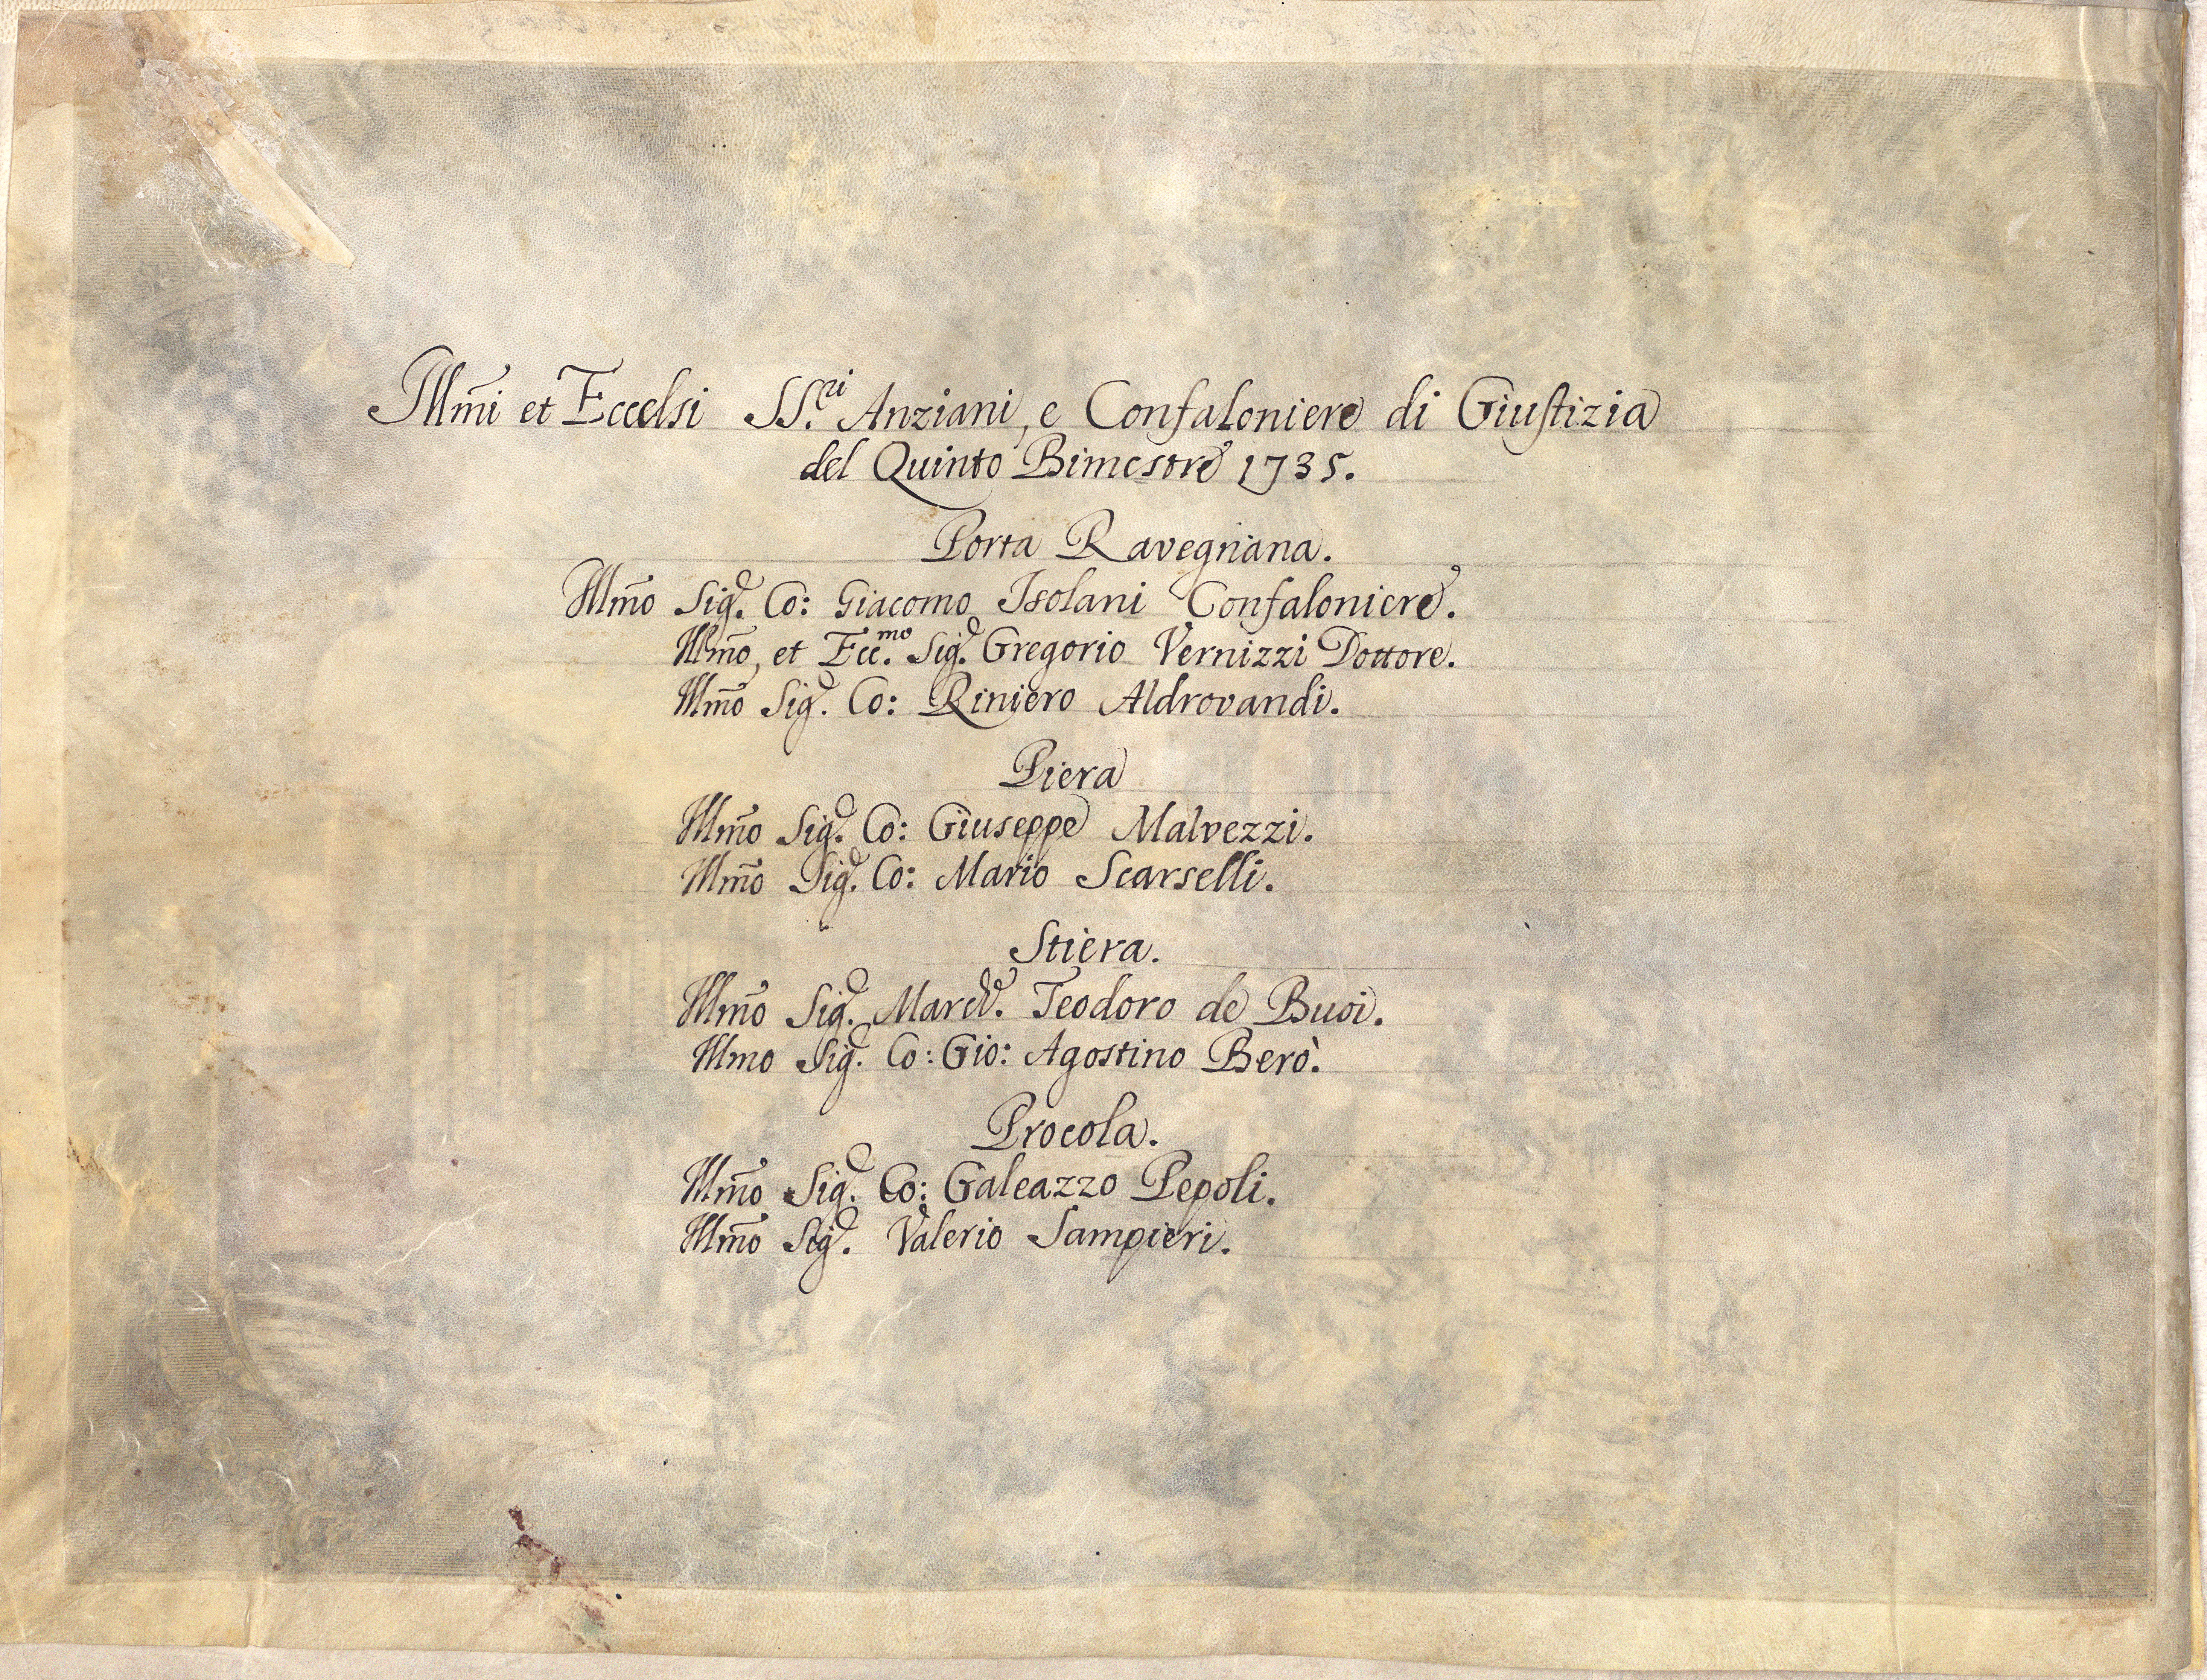 Illm̃i et Eccelsi SS.ri Anziani, e Confaloniere di Giustizia
del Quinto Bimestre 1735.
Porta Ravegnana.
Illm̃o Sig.r Co: Giacomo Isolani Confaloniere.
Illm̃o, et Ecc.mo Sig.r Gregorio Vernizzi Dottore.
Illm̃o Sig.r Co: Riniero Aldrovandi.
Piera
Illm̃o Sig.r Co: Giuseppe Malvezzi.
Illm̃o Sig.r Co: Mario Scarselli.
Stiera.
Illm̃o Sig.r March.e Teodoro de Buoi.
Illmo Sig.r Co: Gio: Agostino Berò.
Procola.
Illm̃o Sig.r Co: Galeazzo Pepoli.
Illm̃o Sig.r Valerio Sampieri.